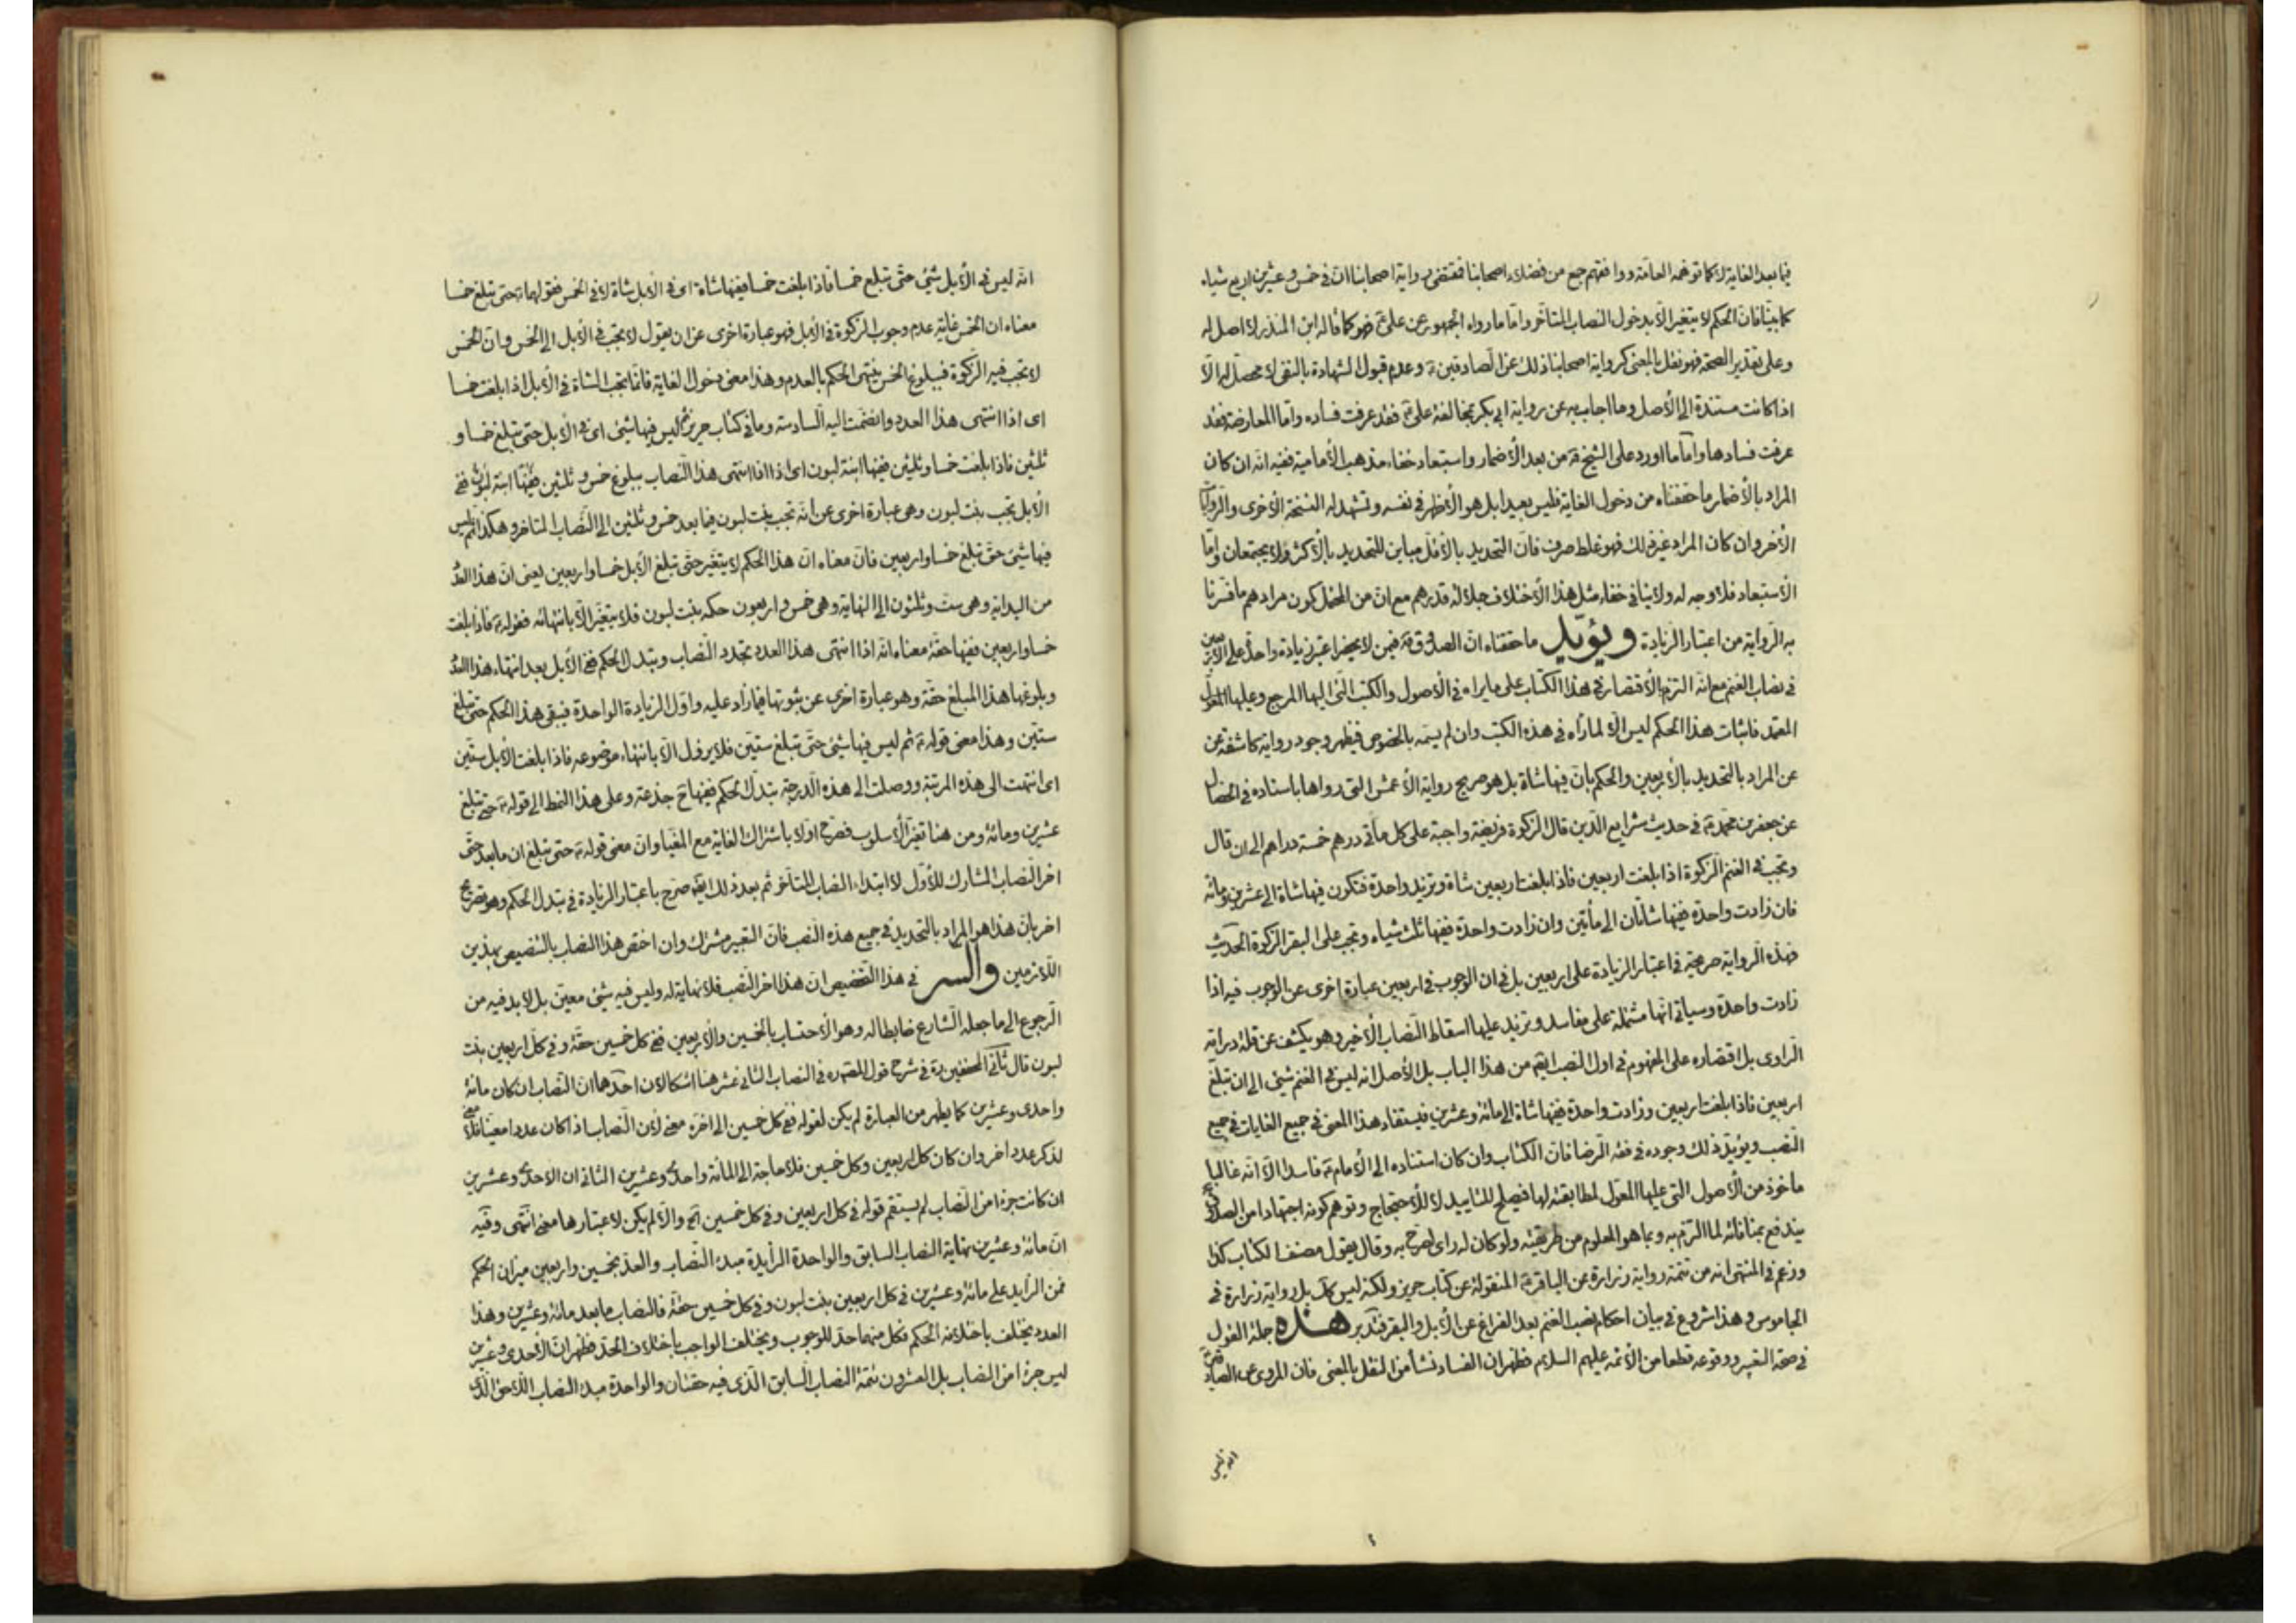 فيما بعد الغاية لا كما توهمه العامة ووافقهم جمع من فضلاء اصحابنا فمقتضى رواية اصحابنا ان في خمس وعشرين اربع شياه
كما بينا فان الحكم لا يتغير الا بدخول النصاب المتأخر واما ما رواه الجمهور عن علي ع فهو كما قاله ابن المنذر لا اصل له
وعلى تقدير الصحة فهو نقل بالمعنى كرواية اصحابنا ذلك عن الصادقين ع وعدم قبول الشهادة بالنفى لا محصل له الا
اذا كانت مستندة الى الأصل وما اجاب به عن رواية ابي بكر بمخالفة على ع فقد عرفت فساده واما المعارضة فقد
عرفت فسادها واما ما اورد على الشيخ ره من بعد الأضمار واستبعاد خفاء مذهب الأمامية ففيه انه ان كان
المراد بالأضمار ما حققناه من دخول الغاية فليس بعيدا بل هو الأظهر في نفسه وتشهد له النسخة الأخرى والروايات
الأخر وان كان المراد غير ذلك فهو غلط صرف فان التحديد بالأقل مباين للتحديد بالأكثر فلا يجتمعان واما
الأستبعاد فلا وجه له ولا ينافى خفاء مثل هذا الأختلاف جلالة قدرهم مع ان من المحتمل كون مرادهم ما فسرنا
به الرواية من اعتبار الزيادة ويؤيد ما حققناه ان الصدوق ره فيمن لا يحضر اعتبر زيادة واحدة على الأربعين
في نصاب الغنم مع انه التزم الأقتصار في هذا الكتاب على ما يراه في الأصول والكتب التى اليها المرجع وعليها المعول
المعتمد فاثبات هذا الحكم ليس الا لما رآه في هذه الكتب وان لم يسمه بالخصوص فيظهر وجود رواية كاشفة عن
عن المراد بالتحديد بالأربعين والحكم بان فيها شاة بل هو صريح رواية الأعمش التى رواها باسناده في الخصال
عن جعفر بن محمد ع في حديث شرايع الدين قال الزكوة فريضة واجبة على كل مأتى درهم خمسة دراهم الى ان قال
وتجب في الغنم الزكوة اذا بلغت اربعين فاذا بلغت اربعين شاة وتزيد واحدة فتكون فيها شاة الى عشرين ومائة
فان زادت واحدة ففيها شاتان الى مأتين وان زادت واحدة ففيها ثلث شياه وتجب على البقر الزكوة الحديث
فهذه الرواية صريحة في اعتبار الزيادة على اربعين بل في ان الوجوب في اربعين عبارة اخرى عن الوجوب فيه اذا
زادت واحدة وسياتى انها مشتملة على مفاسد ويزيد عليها اسقاط النصاب الأخير وهو يكشف عن قلة دراية
الراوى بل اقتصاره على المفهوم في اول النصب ايضا من هذا الباب بل الأصل انه ليس في الغنم شئ الى ان تبلغ
اربعين فاذا بلغت اربعين وزادت واحدة ففيها شاة الى مائة وعشرين فيستفاد هذا المعنى في جميع الغايات في جميع
النصب ويؤيد ذلك وجوده في فقه الرضا فان الكتاب وان كان استناده الى الأمام ع فاسدا الا انه غالبا
ماخوذ من الأصول التى عليها المعول لمطابقته لها فيصلح للتاييد لا للأحتجاج وتوهم كونه اجتهادا من الصدوق
يندفع بمنافاته لما التزم به وبما هو المعلوم من طريقته ولو كان له راى لصرح به وقال يقول مصنف الكتاب كذا
وزعم في المنتهى انه من تتمة رواية زرارة عن الباقر ع المنقولة عن كتاب حريز ولكنه ليس كك بل رواية زرارة في
الجاموس وهذا شروع في بيان احكام نصب الغنم بعد الفراغ عن الأبل والبقر فتدبر هذه جملة القول
في صحة التعبير ووقوعه قطعا من الأئمة عليهم السلام فظهر ان الفساد نشأ من النقل بالمعنى فان المروى عن الصادقين
انه ليس
انه ليس في الأبل شئ حتى تبلغ خمسا فاذا بلغت خمسا ففيها شاة اى في الأبل شاة لا في الخمس فقولهما ع حتى تبلغ خمسا
معناه ان الخمس غاية عدم وجوب الزكوة في الأبل فهو عبارة اخرى عن ان يقول لا يجب في الأبل الى الخمس وان الخمس
لا تجب فيه الزكوة فببلوغ الخمس ينتهى الحكم بالعدم وهذا معنى دخول الغاية فانما تجب الشاة في الأبل اذا بلغت خمسا
اى اذا انتهى هذا العدد وانضمت اليه السادسة وما في كتاب حريز ثم ليس فيها شئ اى في الأبل حتى تبلغ خمسا و
ثلثين فاذا بلغت خمسا وثلثين ففيها ابنة لبون اى اذا انتهى هذا النصاب ببلوغ خمس وثلثين ففيها ابنة لبون ففى
الأبل تجب بنت لبون وهى عبارة اخرى عن انه تجب بنت لبون فيما بعد خمس وثلثين الى النصاب المتاخر وهكذا ثم ليس
فيها شئ حتى تبلغ خمسا واربعين فان معناه ان هذا الحكم لا يتغير حتى تبلغ الأبل خمسا واربعين يعنى ان هذا العدد
من البداية وهى ست وثلثون الى النهاية وهى خمس واربعون حكمه بنت لبون فلا يتغير الا بانتهائه فقوله ع فاذا بلغت
خمسا واربعين ففيها حقة معناه انه اذا انتهى هذا العدد تجدد النصاب وتبدل الحكم ففى الأبل بعد انتهاء هذا العدد
وبلوغها هذا المبلغ حقة وهو عبارة اخرى عن ثبوتها فيما زاد عليه واول الزيادة الواحدة فيبقى هذا الحكم حتى تبلغ
ستين وهذا معنى قوله ع ثم ليس فيها شئ حتى تبلغ ستين فلا يزول الا بانتهاء موضوعه فاذا بلغت الأبل ستين
اى انتهت الى هذه المرتبة ووصلت الى هذه الدرجة تبدل الحكم ففيها ح جذعة وعلى هذا النمط الى قوله ع حتى تبلغ
عشرين ومائة ومن هنا تغير الأسلوب فصرح اولا باشتراك الغاية مع المغيا وان معنى قوله ع حتى تبلغ ان ما بعد حتى
اخر النصاب المشارك للأول لا ابتداء النصاب المتأخر ثم بعد ذلك ايضا صرح باعتبار الزيادة في تبدل الحكم وهو تصريح
اخر بان هذا هو المراد بالتحديد في جميع هذه النصب فان التعبير مشترك وان اختص هذا النصاب بالتنصيص بهذين
اللازمين والسر في هذا التخصيص ان هذا اخر النصب فلا نهاية له وليس فيه شئ معين بل لابد فيه من
الرجوع الى ما جعله الشارع ضابطا له وهو الأحتساب بالخمسين والأربعين ففى كل خمسين حقة وفى كل اربعين بنت
لبون قال ثانى المحققين ره في شرح قول المصنف ره في النصاب الثانى عشر هنا اشكالان احدهما ان النصاب ان كان مائة
واحدى وعشرين كما يظهر من العبارة لم يكن لقوله ففى كل خمسين الى اخره معنى لأن النصاب اذا كان عددا معينا فلا معنى
لذكر عدد اخر وان كان كل اربعين وكل خمسين فلا حاجة الى المائة واحدى وعشرين الثانى ان الأحدى وعشرين
ان كانت جزءا من النصاب لم يستقم قوله في كل اربعين وفى كل خمسين الخ والا لم يكن لاعتبارها معنى انتهى وفيه
ان مائة وعشرين نهاية النصاب السابق والواحدة الزايدة مبدء النصاب والعد بخمسين واربعين ميزان الحكم
فمن الزايد على مائة وعشرين في كل اربعين بنت لبون وفى كل خمسين حقة فالنصاب ما بعد مائة وعشرين وهذا
العدد يختلف باختلافه الحكم فكل منهما حد للوجوب ويختلف الواجب باختلاف الحد فظهر ان الأحدى وعشرين
ليس جزءا من النصاب بل العشرون تتمة النصاب السابق الذى فيه حقتان والواحدة مبدء النصاب اللاحق الذى